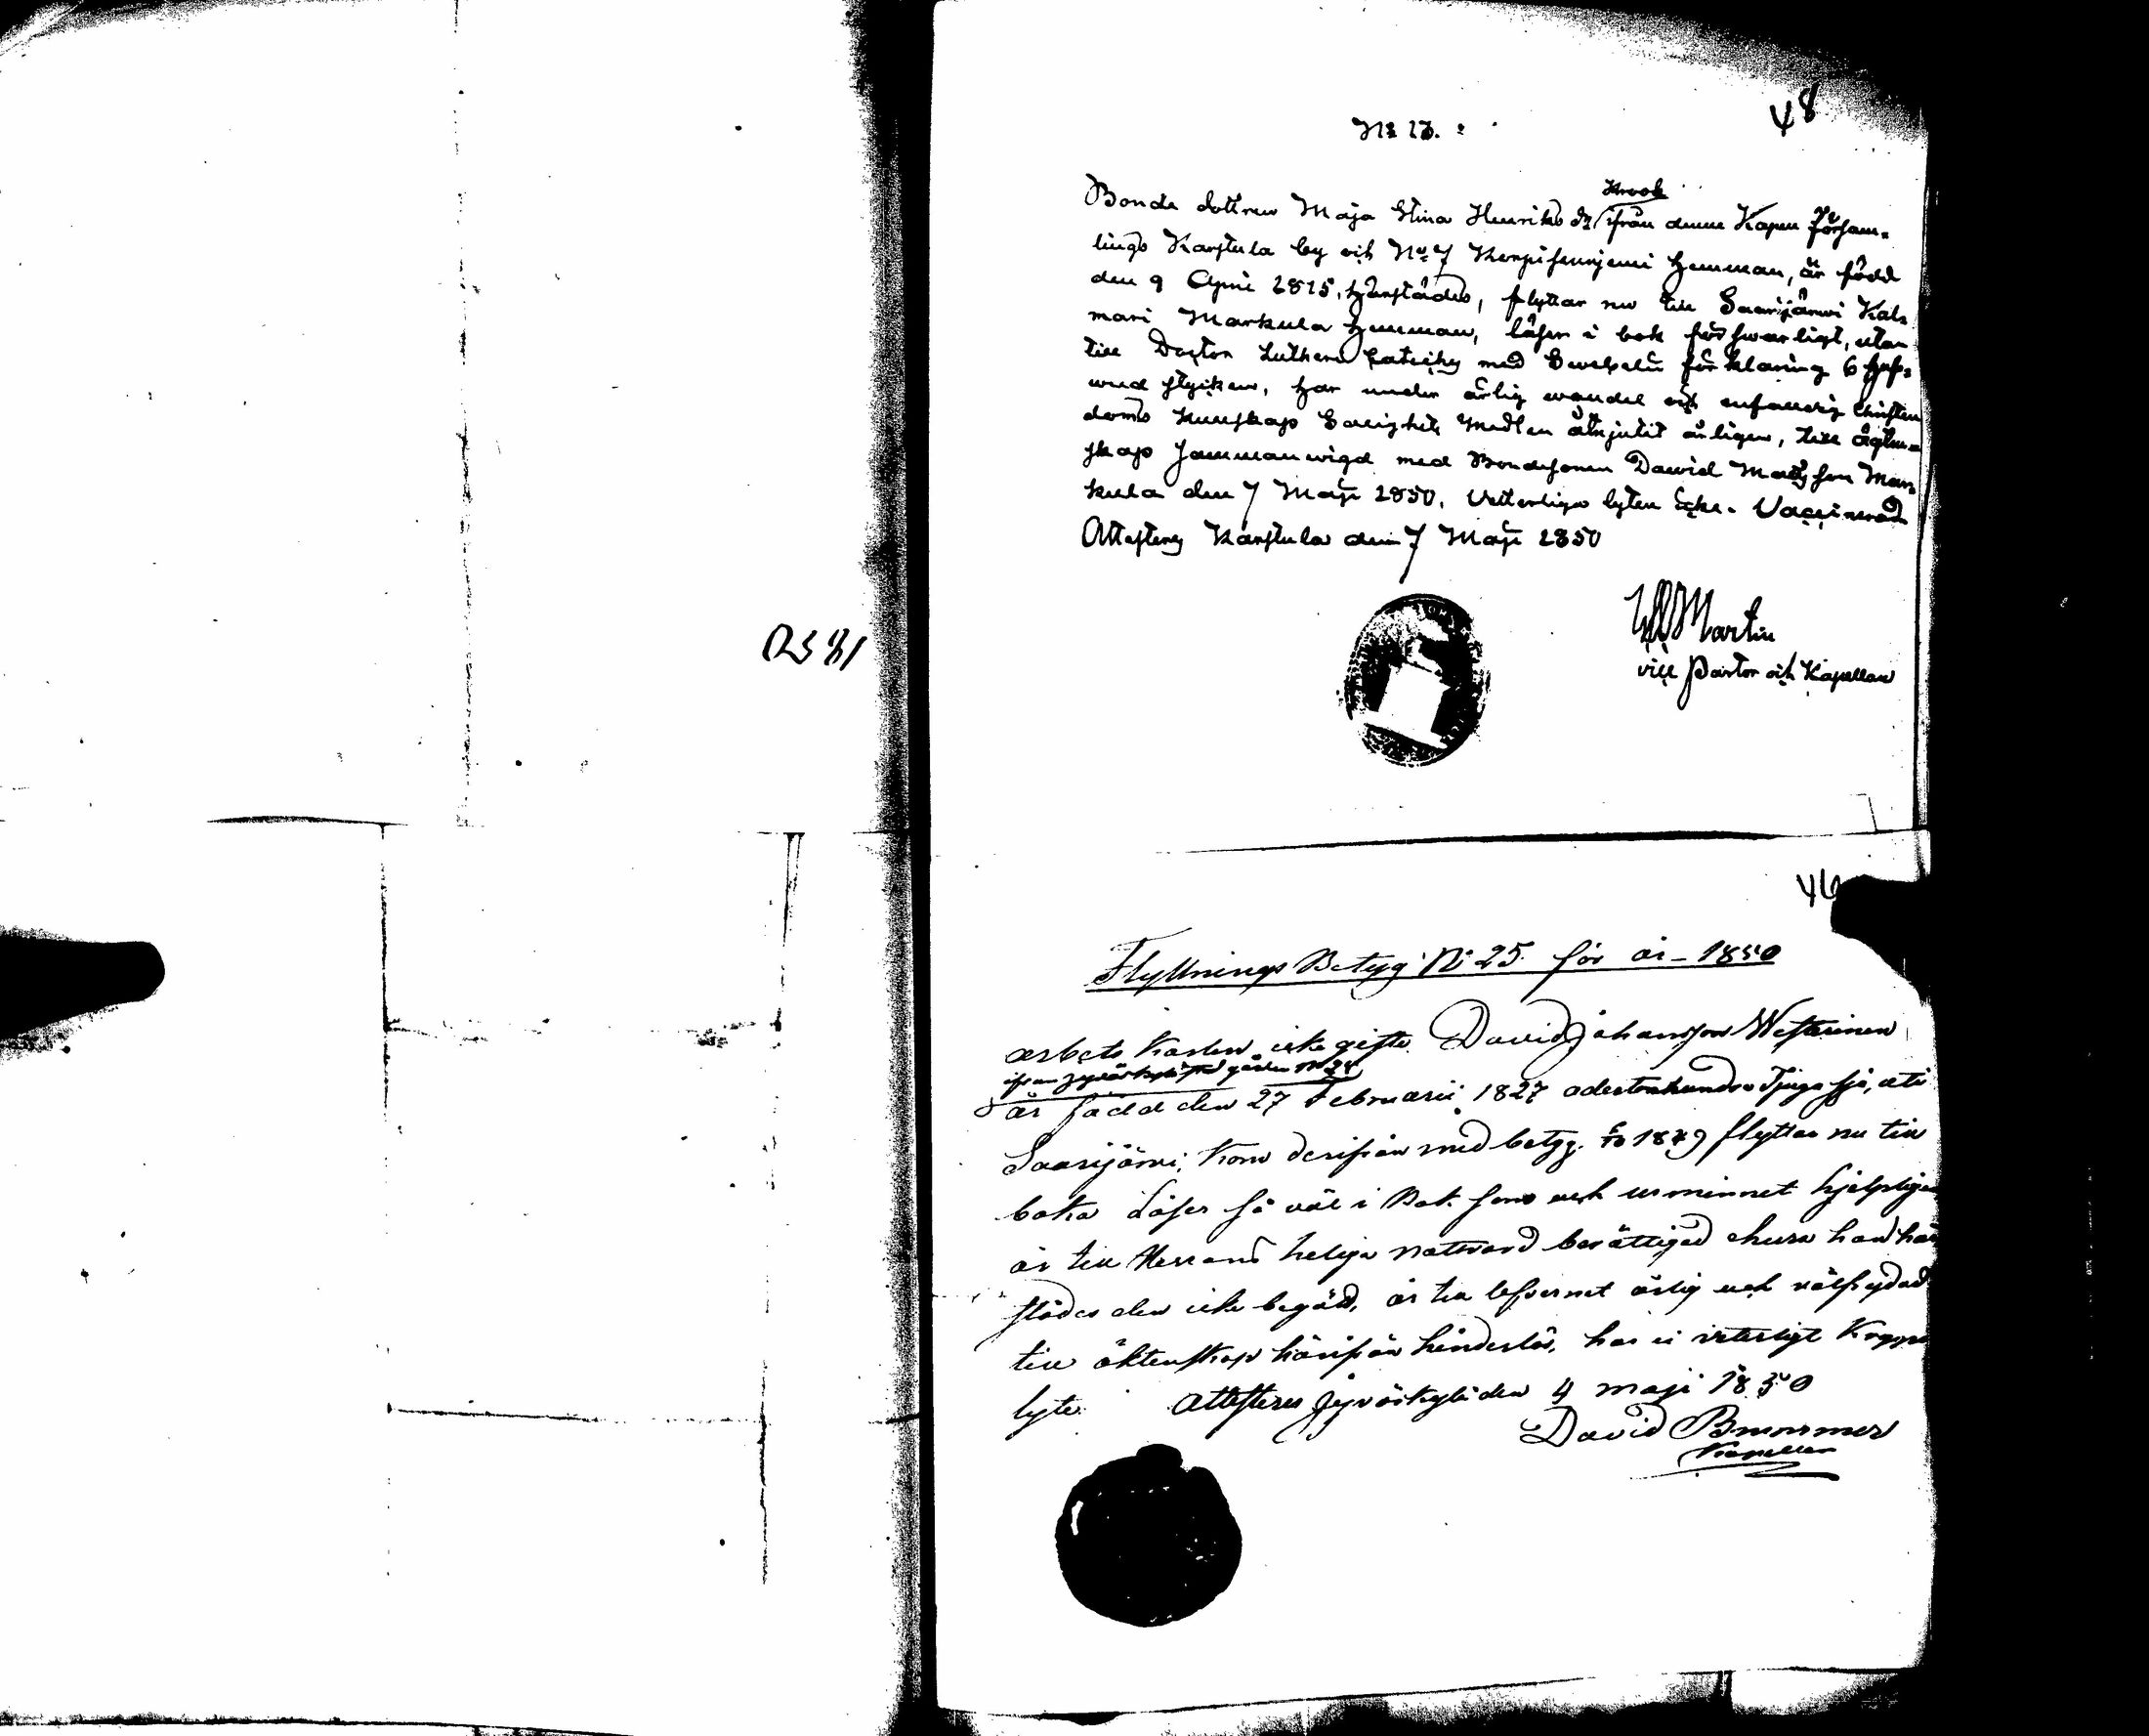 48
No 13.
Krook
Bonde dottren Maja Stina Henriks dr ifrån denne Kapell Församlings
Karstula by och No 7 hemman, är född
den 9 April 1815, härstädes, flyttar nu till Saarijärwi Kalmari
Markula hemman, läser i bok försvarligt, utan
till Doctor Lutheri Cateches med Swebelii förklaring 6 hufwud
stycken, har under ärlig wandel och enfaldig Christendoms
Kunskap Salighets Medlen åtnjutit årligen, till ägtenskap
sammanwigd med Bondesonen Dawid Matsson Markula
den 7 Maji 1850. Vetterligen lyten icke. Vaccinerad
Attesteras Karstula den 7 Maji 1850
Martin
vice Pastor och Kapellan
1850
46
Flyttnings Betyg No 25 för år 1850
arbets karlen icke gifte David Johansson Westerinen
ifrån Jyväskylä gården No 24
är född den 27 Februarii 1827 adertonhundra Tjugo sju, uti
Saarijärvi, kom derifrån med betyg 1849 flyttar nu till
baka Läser så väl i Bok som och ur minnet hjelpligen
är till Herrans heliga nattvard berättigad ehuru han här
städes den icke begått, är till lefvernet ärlig och välfrejdad
till äktenskap härifrån hinderlös, har ei veterligt Kropps
lyte. Attesteras Jyväskylä den 4 maji 1850
David Brummer
Kapellan